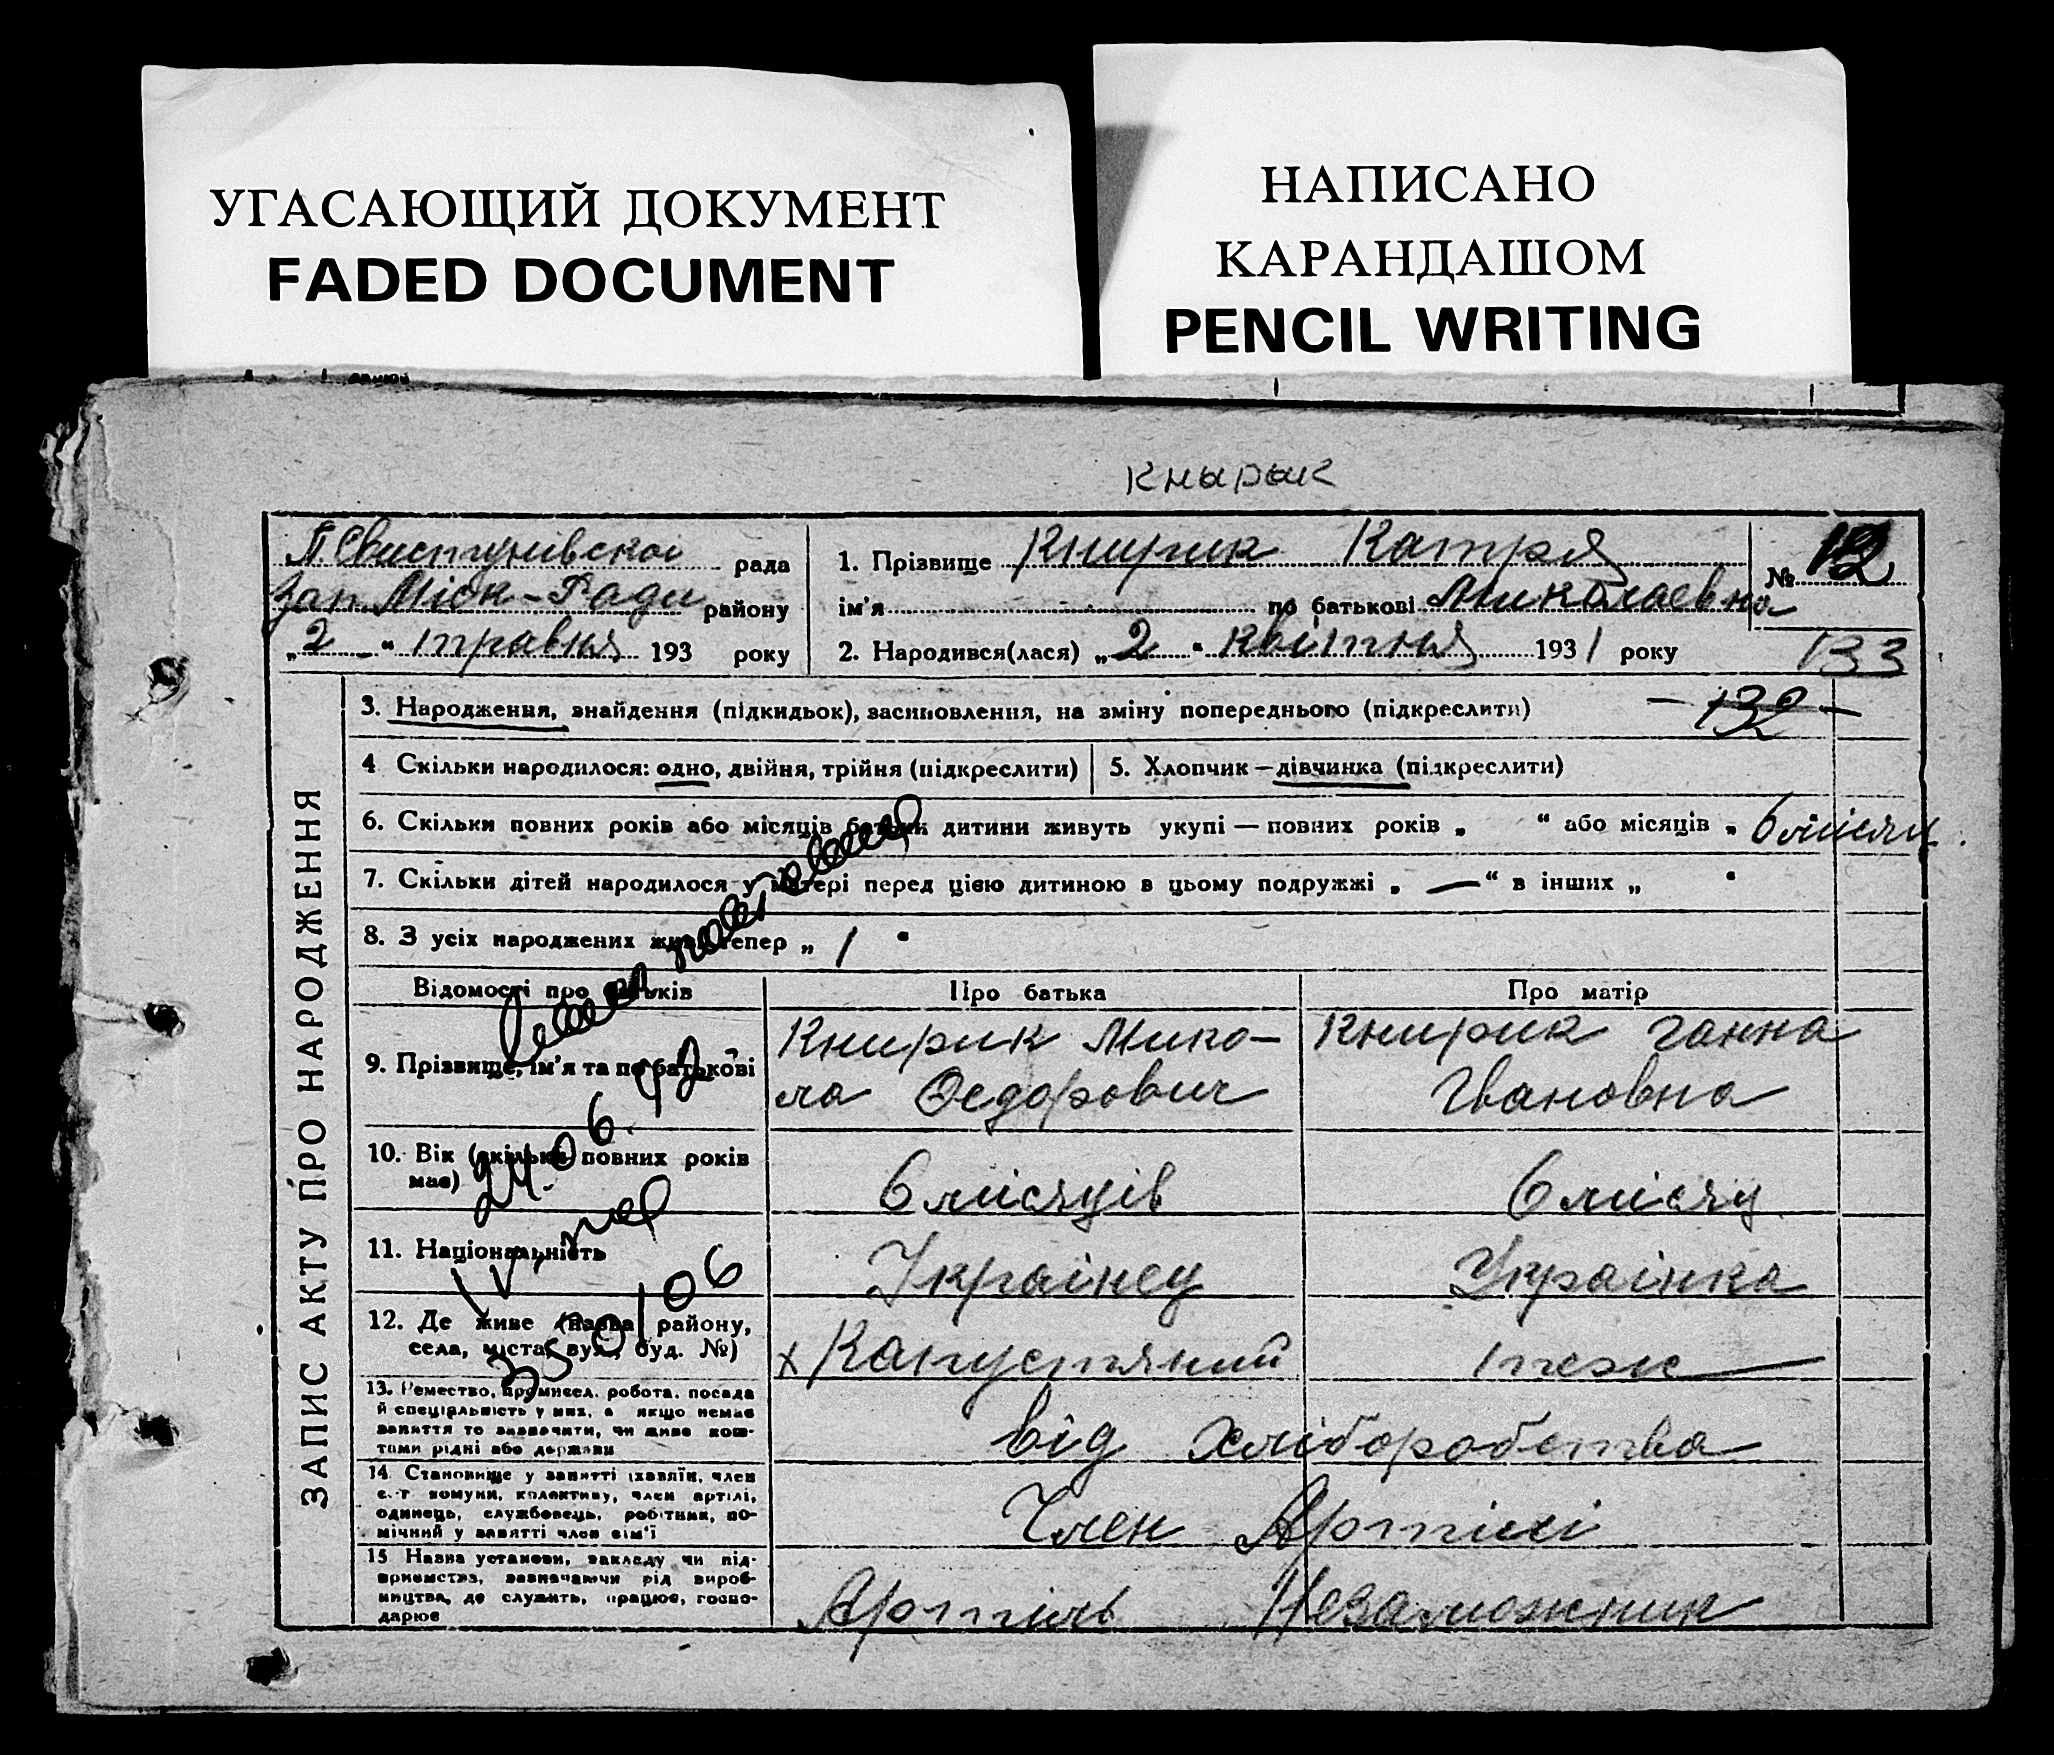 УГАСАЮЩИЙ ДОКУМЕНТ
FADED DOCUMENT
НАПИСАНО
КАРАНДАШОМ
PENCIL WRITING
Кнырик
П. Свистунівскоі рада
Зап Міск-Ради району
„2“ травня 193 року
1. Прізвище Книрик Катря
ім'я по батькові Миколаевна
2. Народився(лася) „2“ квітня 1931 року
№ 12
133
3. Народження, знайдення (підкидьок), засиновлення, на зміну попереднього (підкреслити) 132
4 Скільки народилося: одно, двійня, трійня (підкреслити)
5. Хлопчик — дівчинка (підкреслити)
6. Скільки повних років або місяців батьки дитини живуть укупі — повних років „ “ або місяців „ 6 місяц.
7. Скільки дітей народилося у матері перед цією дитиною в цьому подружжі „ — “ в інших „ “
8. З усіх народжених живі тепер „ 1 “
ЗАПИС АКТУ ПРО НАРОДЖЕННЯ
Відомості про батьків
Про батька
Про матір
9. Прізвище, ім'я та по батькові
Книрик Мико-
ла Федорович
Книрик Ганна
Івановна
10. Вік (скільки повних років
має)
6 місяців
6 місяц
11. Національність
Українец
Українка
12. Де живе (назва району,
села, міста, вул., буд. №)
х Капустяний
теж
13. Ремество, промисел, робота, посада
й спеціяльність у них, а якщо немає
заняття то зазначити, чи живе кош-
тами рідні або держави
від хліборобства
14. Становище у занятті (хазяїн, член
с.-г комуни, колективу, член артілі,
одинець, службовець, робітник, по-
мічний у занятті член сім'ї
Член Артілі
15 Назва установи, закладу чи під-
приємства, зазначаючи рід вироб-
ництва, де служить, працює, госпо-
дарює
Артіль Незаможник
24.06.42
IV
350106